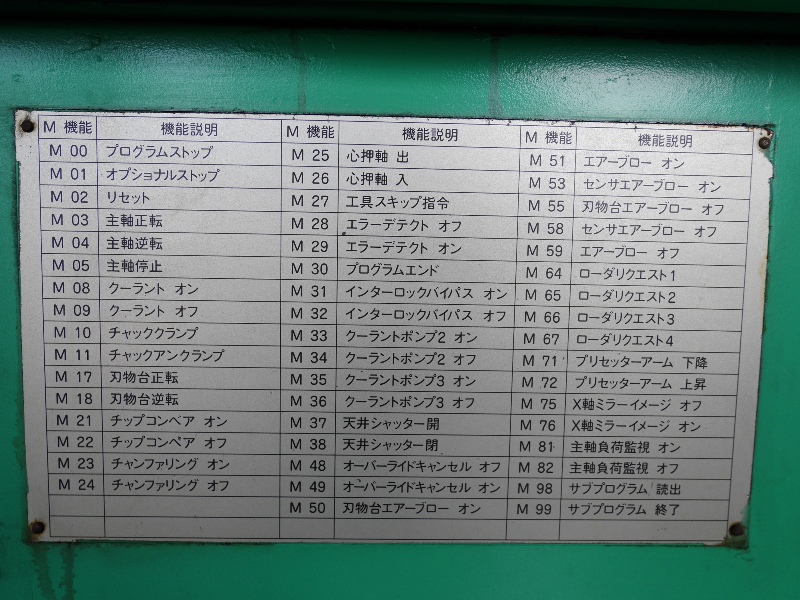 M 機能 機能説明 M 機能 機能説明 M 機能 機能説明
M 00 プログラムストップ M 25 心押軸 出 M 51 エアーブロー オン
M 01 オプショナルストップ M 26 心押軸 入 M 53 センサエアーブロー オン
M 02 リセット M 27 工具スキップ指令 M 55 刃物台エアーブロー オフ
M 03 主軸正転 M 28 エラーデテクト オフ M 58 センサエアーブロー オフ
M 04 主軸逆転 M 29 エラーデテクト オン M 59 エアーブロー オフ
M 05 主軸停止 M 30 プログラムエンド M 64 ローダリクエスト1
M 08 クーラント オン M 31 インターロックバイパス オン M 65 ローダリクエスト2
M 09 クーラント オフ M 32 インターロックバイパス オフ M 66 ローダリクエスト3
M 10 チャッククランプ M 33 クーラントポンプ2 オン M 67 ローダリクエスト4
M 11 チャックアンクランプ M 34 クーラントポンプ2 オフ M 71 プリセッターアーム 下降
M 17 刃物台正転 M 35 クーラントポンプ3 オン M 72 プリセッターアーム 上昇
M 18 刃物台逆転 M 36 クーラントポンプ3 オフ M 75 X軸ミラーイメージ オフ
M 21 チップコンベア オン M 37 天井シャッター開 M 76 X軸ミラーイメージ オン
M 22 チップコンベア オフ M 38 天井シャッター閉 M 81 主軸負荷監視 オン
M 23 チャンファリング オン M 48 オーバーライドキャンセル オフ M 82 主軸負荷監視 オフ
M 24 チャンファリング オフ M 49 オーバーライドキャンセル オン M 98 サブプログラム 読出
M 50 刃物台エアーブロー オン M 99 サブプログラム 終了